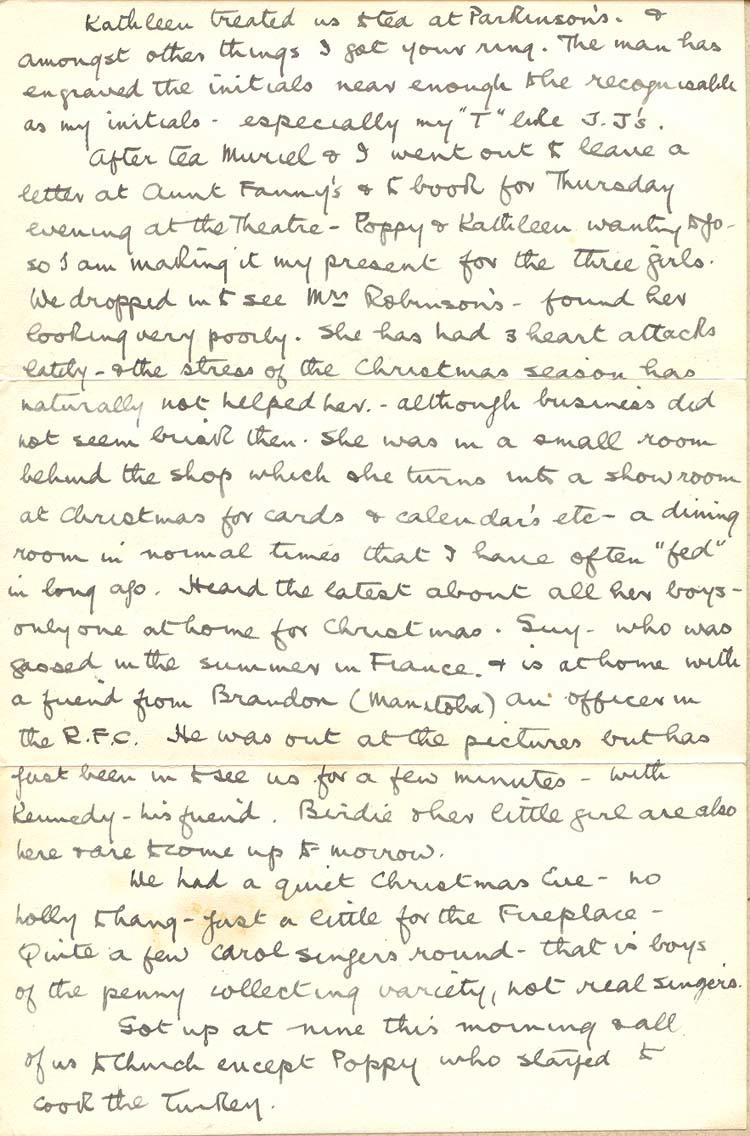 Kathleen treated us to tea at Parkinson's. &
amongst other things I got your ring. The man has
engraved the initials near enough to be recognisable
as my initials - especially my "T" like J.J's.
After tea Muriel & I went out to leave a
letter at Aunt Fanny's & to book for Thursday
evening at the Theatre - Poppy & Kathleen wanting to go -
so I am making it my present for the three girls.
We dropped in to see Mrs Robinson's - found her
looking very poorly. She has had 3 heart attacks
lately - & the stress of the Christmas season has
naturally not helped her. - although business did
not seem brisk then. She was in a small room
behind the shop which she turns into a showroom
at Christmas for cards & calendar's etc - a dining
room in normal times that I have often "fed"
in long ago. Heard the latest about all her boys -
only one at home for Christmas. Guy - who was
gassed in the summer in France. & is at home with
a friend from Brandon (Manitoba) an officer in
the R.F.C. He was out at the pictures but has
just been in to see us for a few minutes - with
Kennedy - his friend. Birdie & her little girl are also
here & are to come up to morrow.
We had a quiet Christmas Eve - no
holly to hang - just a little for the Fireplace -
Quite a few carol singers round - that is boys
of the penny collecting variety, not real singers.
Got up at nine this morning & all
of us to Church except Poppy who stayed to
cook the Turkey.